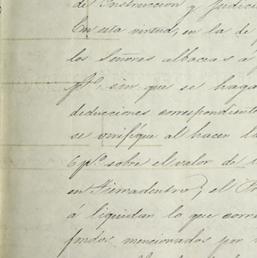 de Instruccion y Judicia
En esta virtud, en la de
los Señores albaceas á
sin que se haga
deduciones correspondiente
se verifique al hacer la
6 p% sobre el valor de
en Tierradentro; el
á liquidar lo que corre
fundos mencionados por